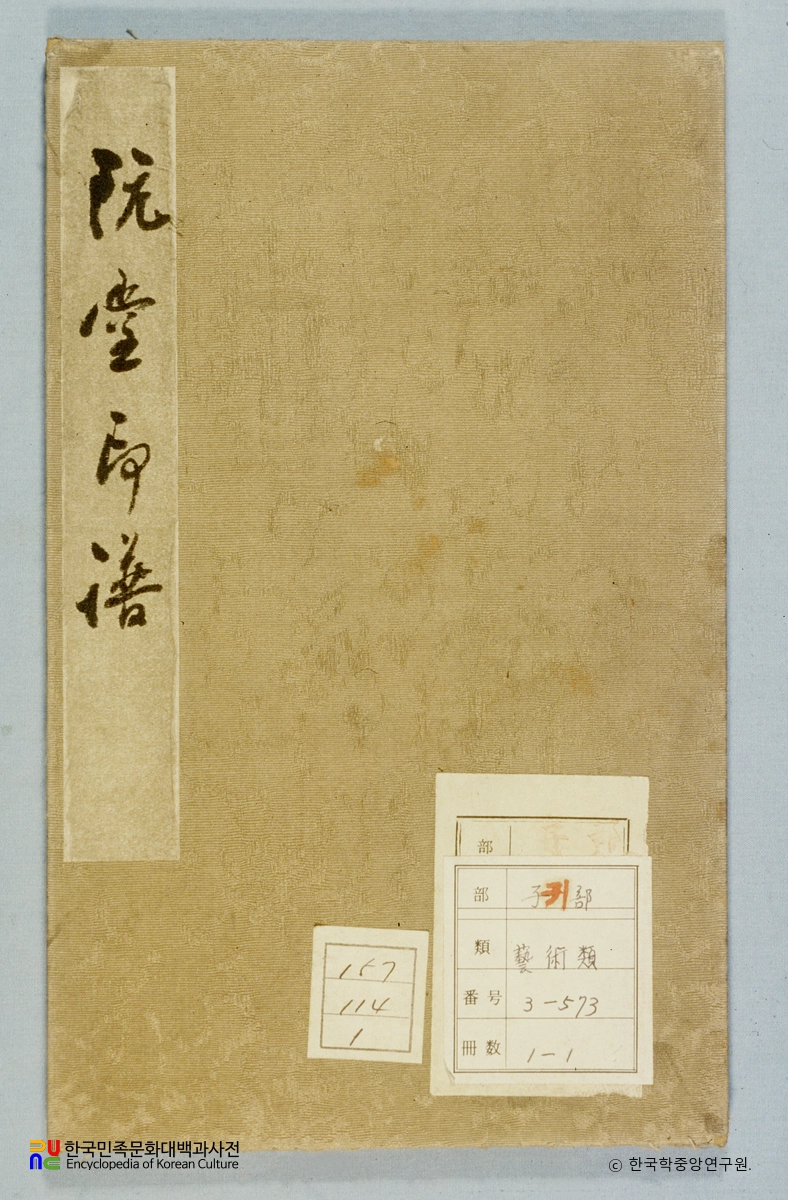 阮堂印譜
部
部 子귀部
類 藝術類
番号 3-573
冊数 1-1
157
114
1
한국민족문화대백과사전
Encyclopedia of Korean Culture
ⓒ 한국학중앙연구원.